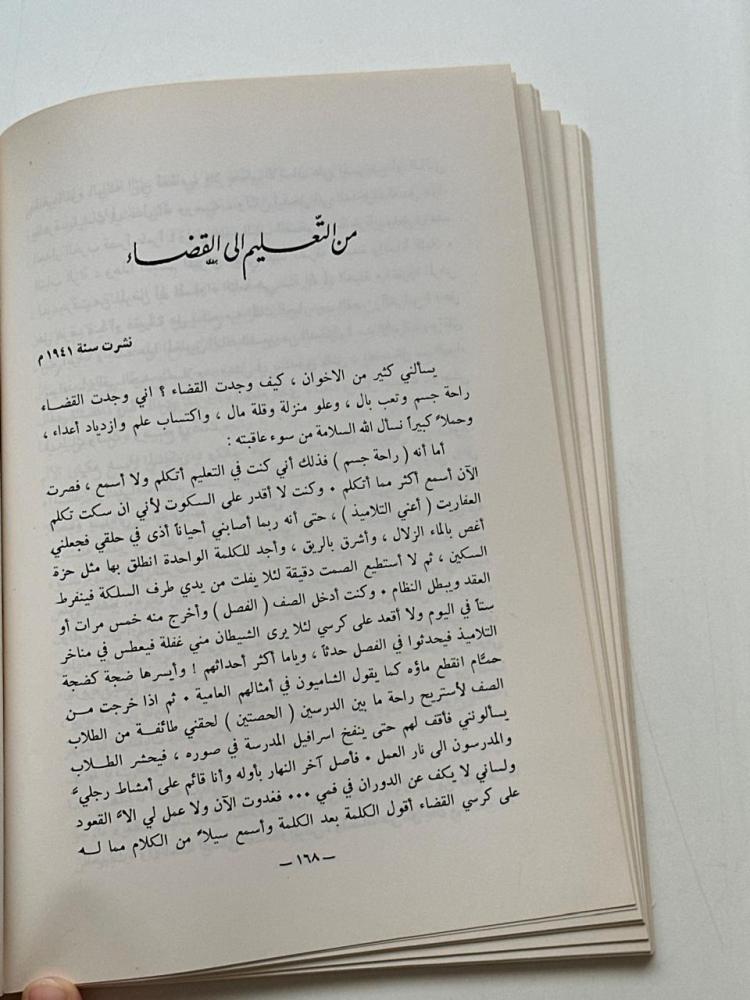 من التّعليم الى القضاء
نشرت سنة ١٩٤١ م
يسألني كثير من الاخوان ، كيف وجدت القضاء ؟ اني وجدت القضاء
راحة جسم وتعب بال ، وعلو منزلة وقلة مال ، واكتساب علم وازدياد أعداء ،
وحملاً كبيراً نسأل الله السلامة من سوء عاقبته :
أما أنه ( راحة جسم ) فذلك أني كنت في التعليم أتكلم ولا أسمع ، فصرت
الآن أسمع أكثر مما أتكلم . وكنت لا أقدر على السكوت لأني ان سكت تكلم
العفاريت ( أعني التلاميذ ) ، حتى أنه ربما أصابني أحياناً أذى في حلقي فجعلني
أغص بالماء الزلال ، وأشرق بالريق ، وأجد للكلمة الواحدة انطلق بها مثل حزة
السكين ، ثم لا أستطيع الصمت دقيقة لئلا يفلت من يدي طرف السلكة فينفرط
العقد ويبطل النظام . وكنت أدخل الصف ( الفصل ) وأخرج منه خمس مرات أو
ستاً في اليوم ولا أقعد على كرسي لئلا يرى الشيطان مني غفلة فيعطس في مناخر
التلاميذ فيحدثوا في الفصل حدثاً ، وياما أكثر أحداثهم ! وأيسرها ضجة كضجة
حمَّام انقطع ماؤه كما يقول الشاميون في أمثالهم العامية . ثم اذا خرجت من
الصف لأستريح راحة ما بين الدرسين ( الحصتين ) لحقني طائفة من الطلاب
يسألونني فأقف لهم حتى ينفخ اسرافيل المدرسة في صوره ، فيحشر الطلاب
والمدرسون الى نار العمل . فأصل آخر النهار بأوله وأنا قائم على أمشاط رجليَّ
ولساني لا يكف عن الدوران في فمي ... فغدوت الآن ولا عمل لي الاَّ القعود
على كرسي القضاء أقول الكلمة بعد الكلمة وأسمع سيلاً من الكلام مما له
— ١٦٨ —